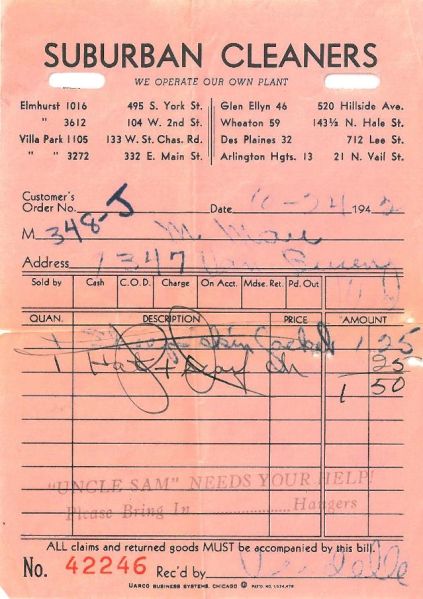 SUBURBAN CLEANERS
WE OPERATE OUR OWN PLANT
Elmhurst 1016 495 S. York St.
" 3612 104 W. 2nd St.
Villa Park 1105 133 W. St. Chas. Rd.
" " 3272 332 E. Main St.
Glen Ellyn 46 520 Hillside Ave.
Wheaton 59 143½ N. Hale St.
Des Plaines 32 712 Lee St.
Arlington Hgts. 13 21 N. Vail St.
Customer's
Order No. Date 194
348-J
M
Address 1347 Van Buren
Sold by Cash C.O.D. Charge On Acct. Mdse. Ret. Pd. Out
QUAN. DESCRIPTION PRICE AMOUNT
1 1 25
1 Hat 25
1 50
"UNCLE SAM" NEEDS YOUR HELP!
Please Bring In .................... Hangers
ALL claims and returned goods MUST be accompanied by this bill.
No. 42246 Rec'd by
UARCO BUSINESS SYSTEMS, CHICAGO